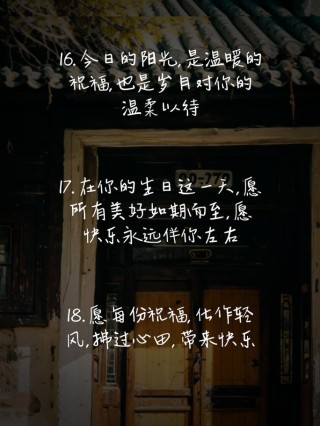 16.今日的阳光,是温暖的
祝福,也是岁月对你的
温柔以待
17.在你的生日这一天,愿
所有美好如期而至,愿
快乐永远伴你左右
18.愿每份祝福,化作轻
风,拂过心田,带来快乐